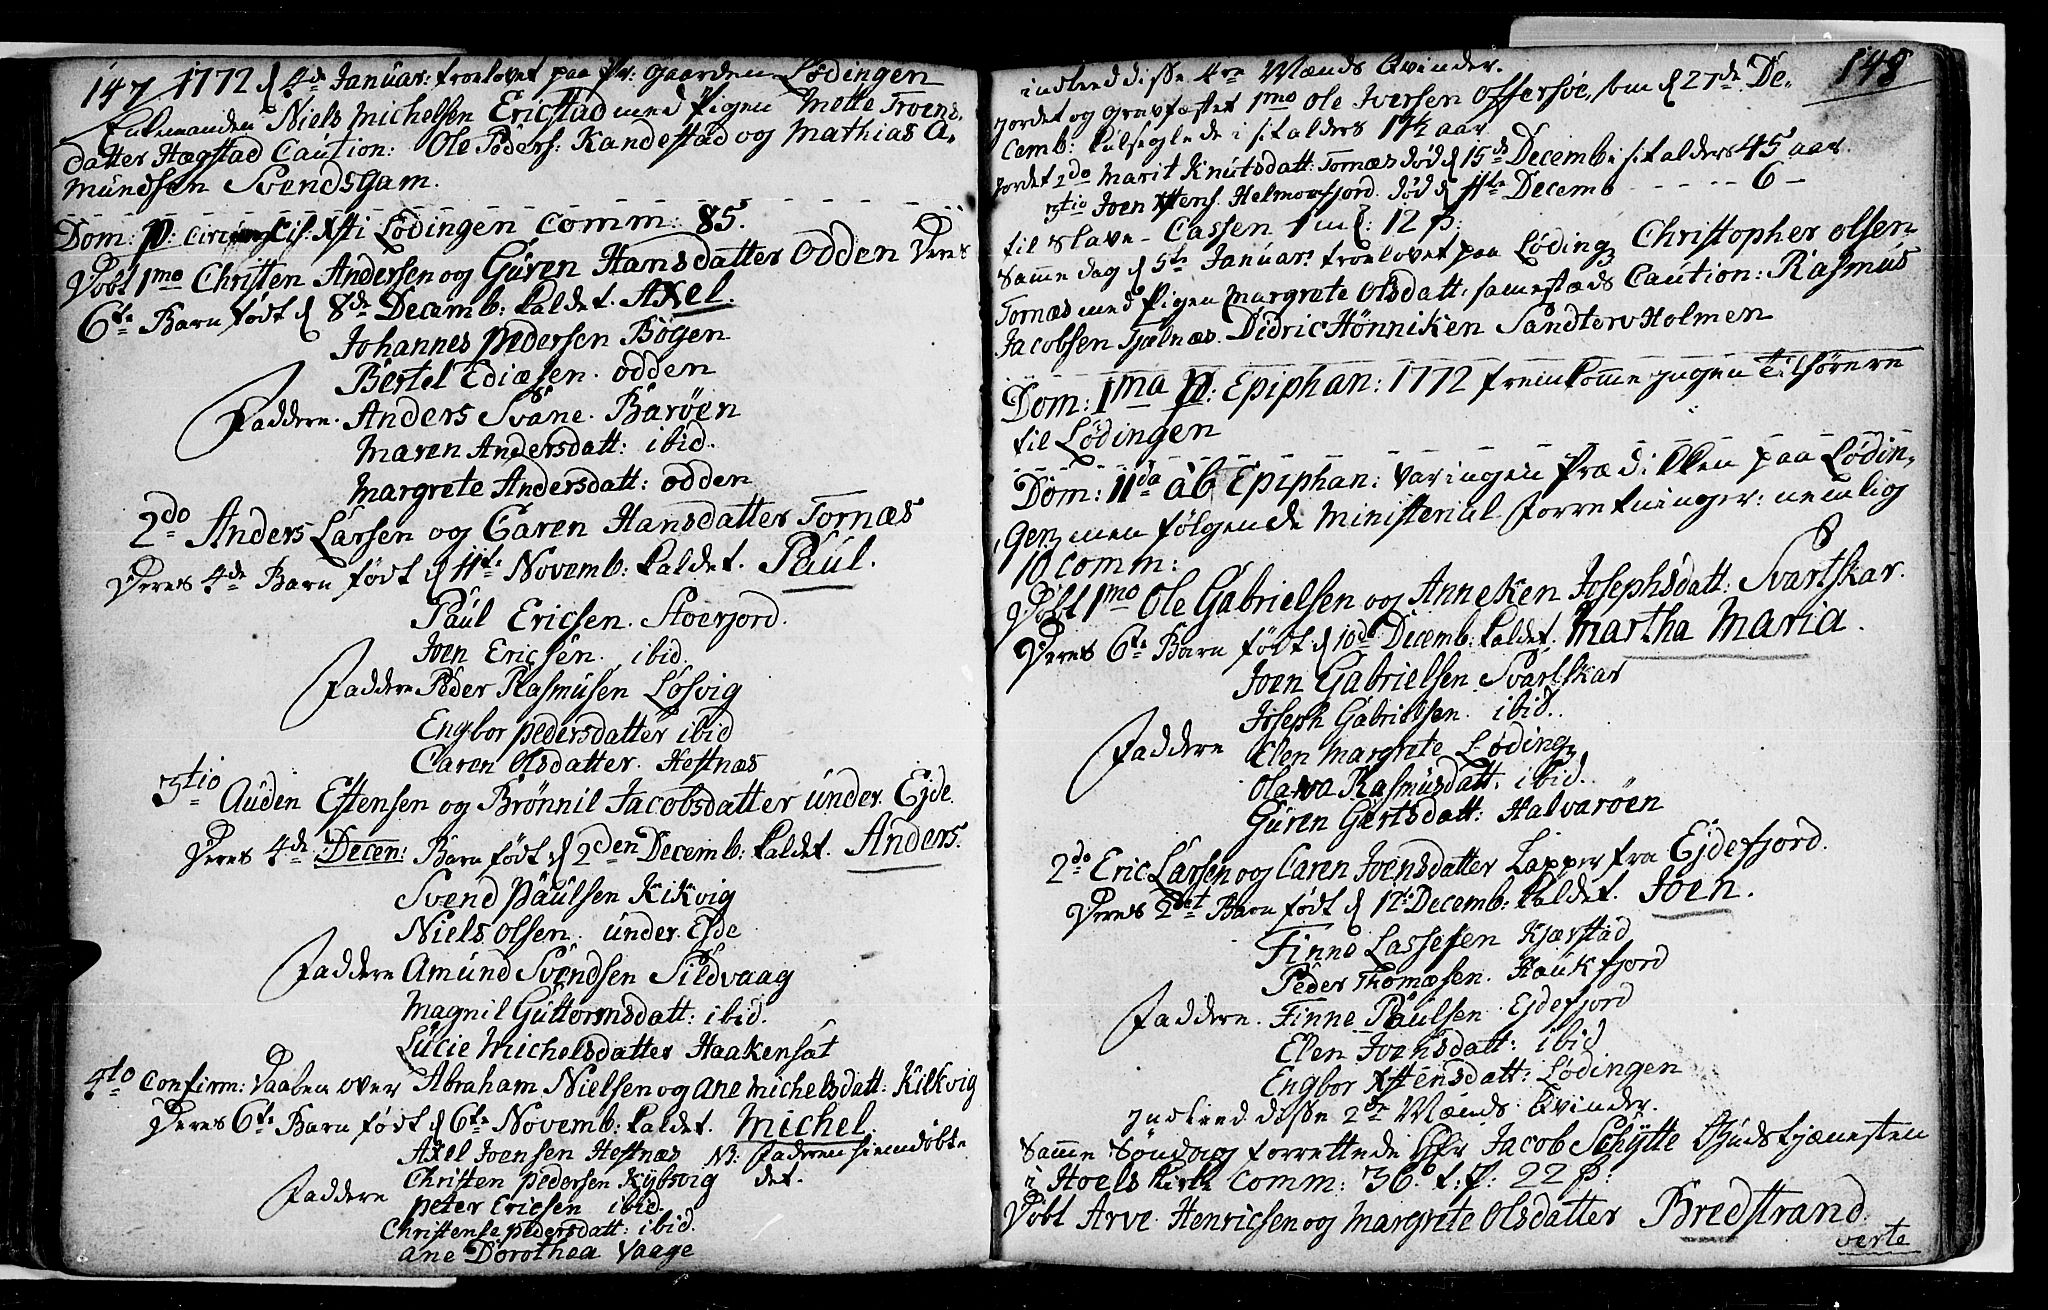 147 1772 d 4de Januar: troelovet paa Pr: gaarden Lødingen
Enkemanden Niels Michelsen Ericstad med Pigen Mette Troens,
datter Hægstad Caution: Ole Peders: Kandestad og Mathias A,
mundsen Svendsgam.
Dom: p: circumcis. Xsti Lødingen Comm: 85.
Døbt 1mo Christen Andersen og Guren Hansdatter Odden Deres
6te Barn født d 8de Decemb: kaldet. Axel.
Johannes Pedersen Bogen
Bertel Ediæsen. Odden
Faddere. Anders Svane. Barøen
Maren Andersdatt: ibid.
Margrete Andersdatt: Odden
2do Anders Larsen og Caren Hansdatter Tornæs
Deres 4de Barn født d 11te Novemb: kaldet. Paul.
Paul Ericsen. Stoerjord.
Joen Ericsen. ibid.
Faddere Peder Rasmusen Løsvig
Engbor Pedersdatter ibid
Caren Olsdatter. Hestnæs
3tio Auden Estensen og Brønnil Jacobsdatter under Ejde.
Deres 4de Decen: Barn født d 2den Decemb: kaldet. Anders.
Svend Paulsen Kikvig
Niels Olsen. under Ejde
Faddere Amund Svendsen Sildvaag
Magnil Guttormsdatt: ibid.
Lucie Michelsdatter Haakensat
4to Confirm: Daaben over Abraham Nielsen og Ane Michelsdatt: Kilkvig
Deres 6te Barn født d 6te Novemb: kaldet. Michel.
Axel Joensen Hestnæs NB: Faderen hiemdøbte
Christen Pedersen Kjybvig det.
Faddere Peter Ericsen ibid.
Christense Pedersdatt: ibid.
Ane Dorothea Vaage
148
indleed disse 4re Mænds Qvinder.
Jordet og gravfæstet 1mo Ole Iversen Offersøe, som d 27de De,
cemb: i sit alders 17½ aar
Jordet 2do Marit Knutsdatt: Tornæs død d 15de Decemb i sit alders 45 aar.
3tio Joen Xstens. Helmonfjord død d 11te Decemb - - - - 6 -
til Slave-Cassen 1 m: 12 p:
Samme dag d 5te Januar: troelovet paa Løding Christopher Olsen
Tornæs med Pigen Margrete Olsdatt: samestæds Caution: Rasmus
Jacobsen Tjælnæs. Didric Hønniken Sandtorv Holmen
Dom: 1ma p: Epiphan: 1772 fremkomme ingen Tilhørere
til Lødingen
Dom: 11da ab Epiphan: var ingen Prædikken paa Lødin,
gen, men følgende Ministerial Forretninger: nemlig
10 Comm:
Døbt 1mo Ole Gabrielsen og Anneken Josephsdatt: Svartskar.
Deres 6te Barn født d 10de Decemb: kaldet. Martha Maria.
Joen Gabrielsen Svartskar
Joseph Gabrielsen. ibid.
Faddere Elen Margrete Løding
Olava Rasmusdatt: ibid.
Guren Gertsdatt: Halvarøen
2do Eric Larsen og Caren Joensdatter Lapper fra Ejdefjord.
Deres 2det Barn født d 17de Decemb: kaldet. Joen.
Finne Lassesen Kjærstad
Peder Thomæsen. Haukfjord
Faddere. Finne Paulsen Ejdefjord
Elen Joensdatt: ibid
Engbor Xstensdatt: Lødingen
Indleed disse 2de Mænds Qvinder.
Samme Søndag forrettede Hr Jacob Schytte Gudstjænesten
i Hoels Kirke Comm: 36. t: f: 22 p:
Døbt Arve Henricsen og Margrete Olsdatter Bredstrand.
verte